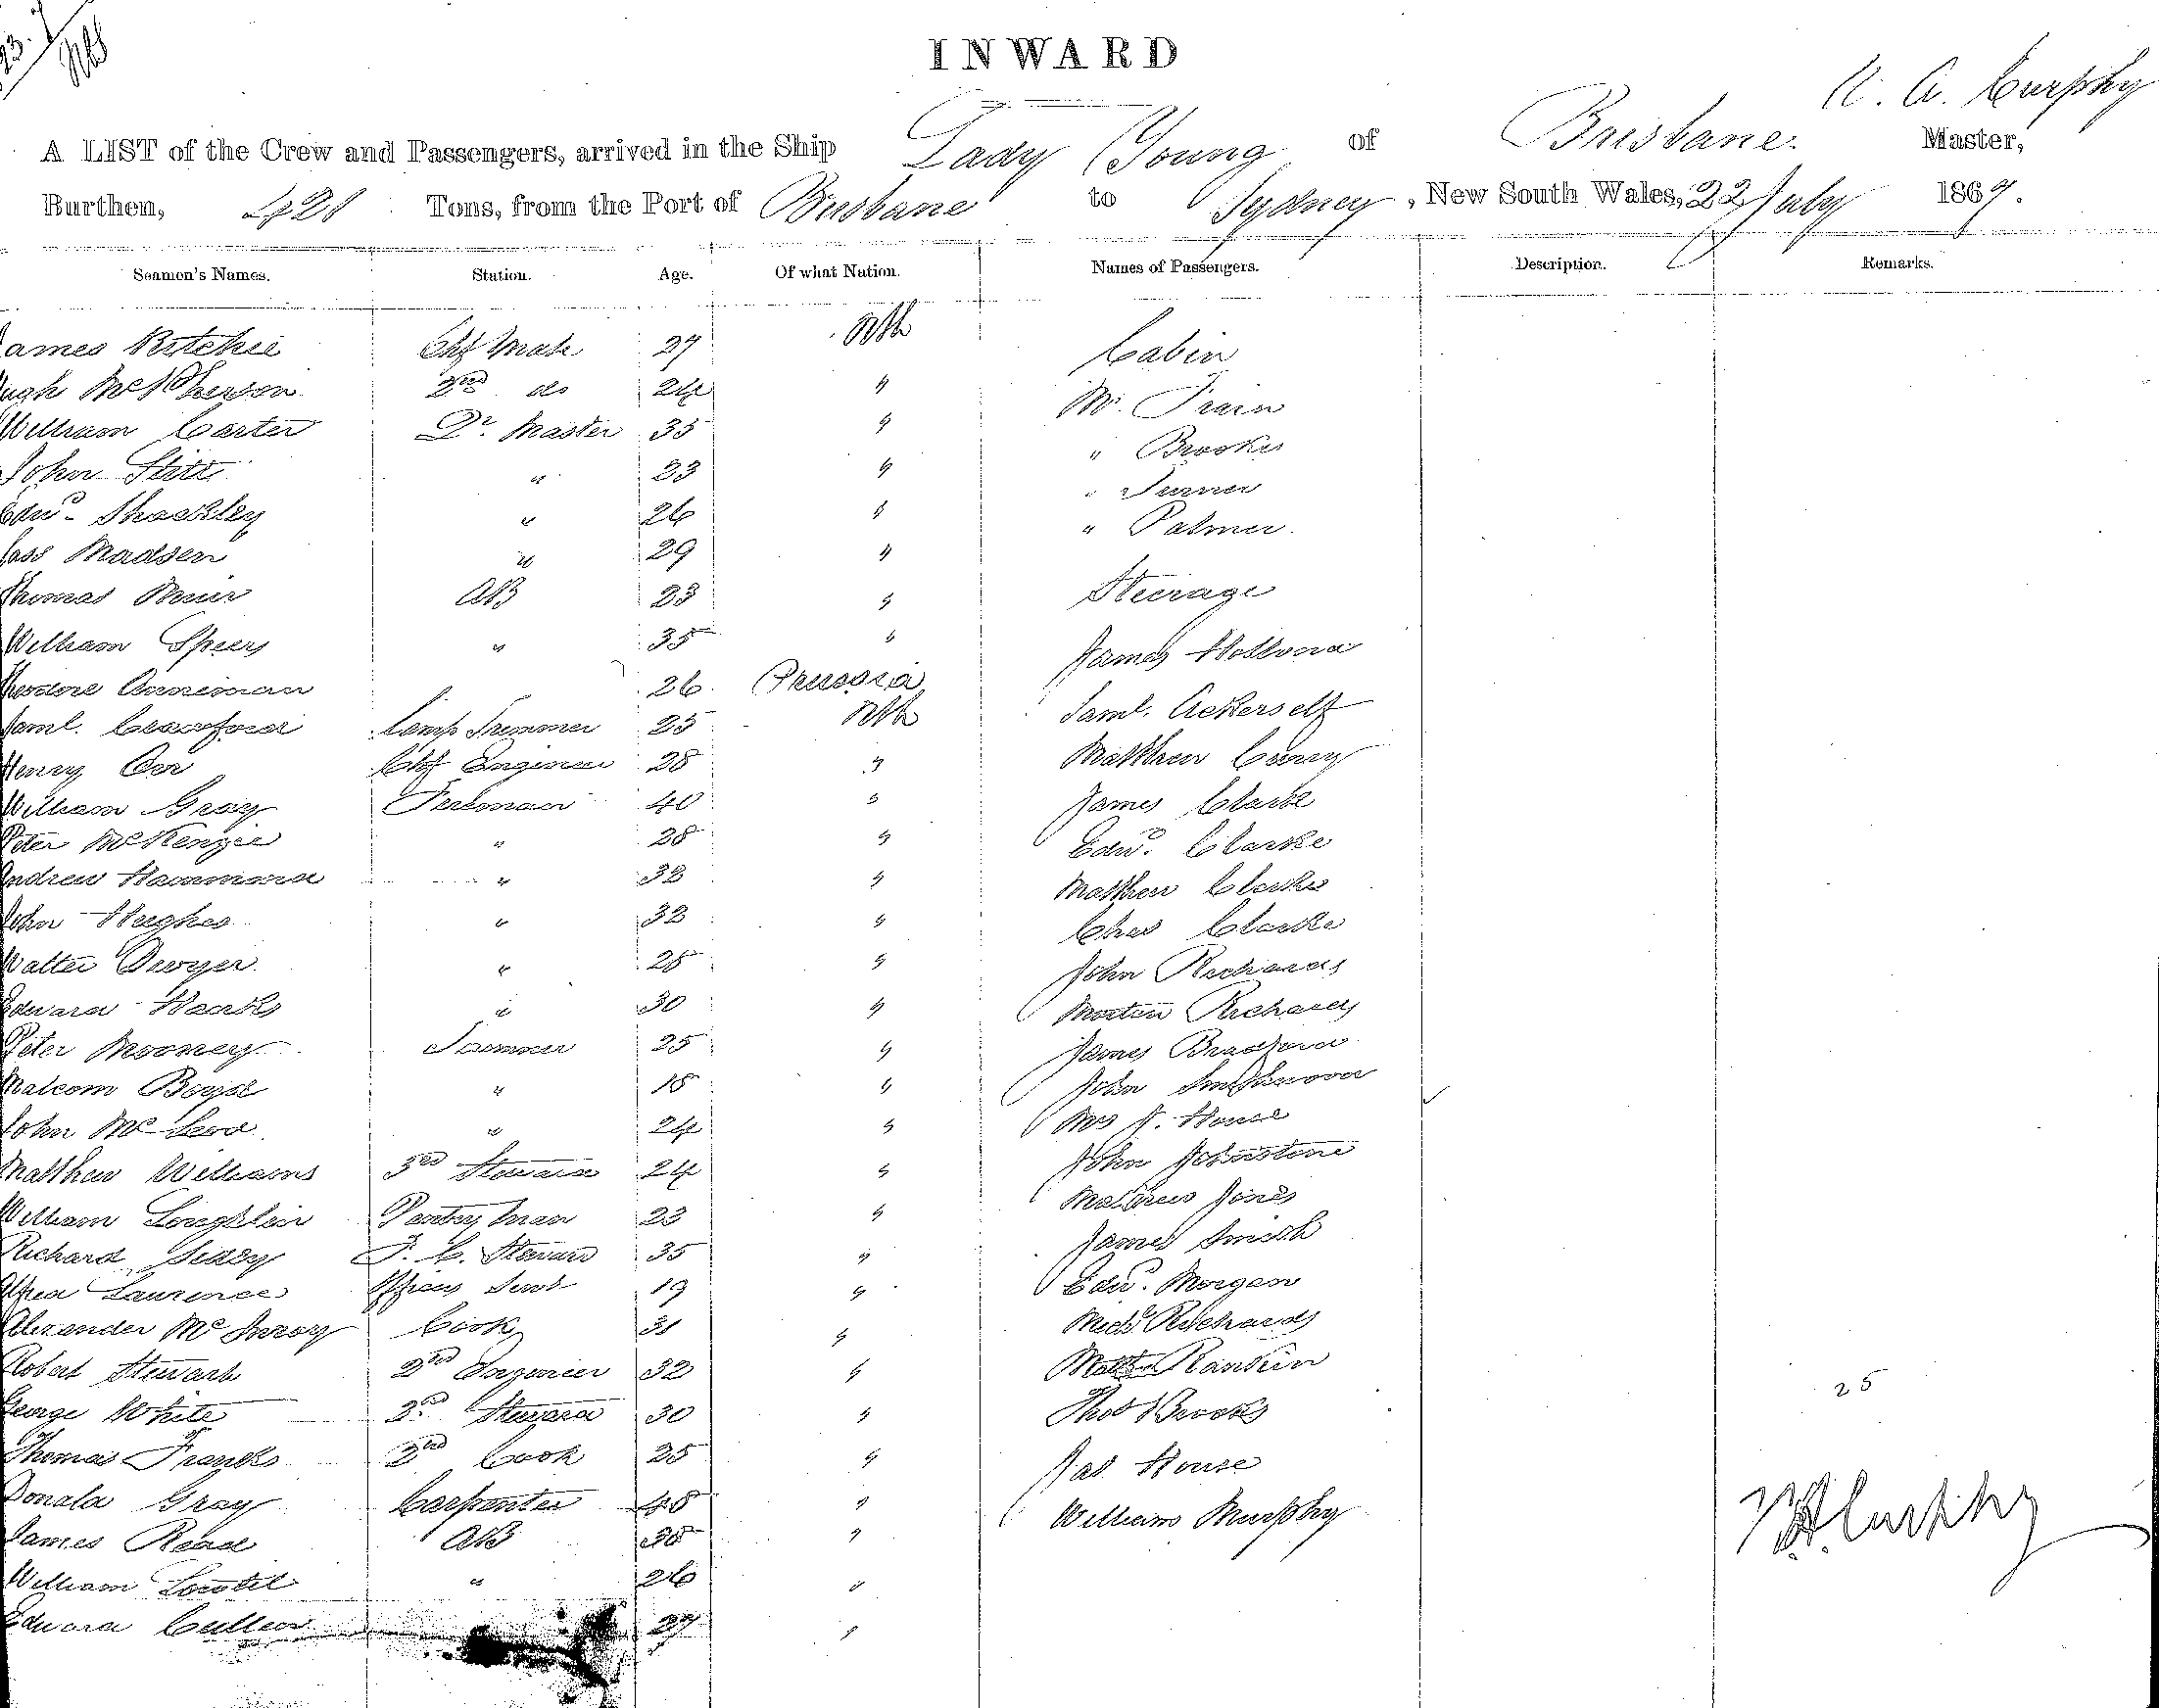 INWARD
A. Curphy
A LIST of the Crew and Passengers, arrived in the Ship Lady Young of Brisbane Master,
Burthen, 421 Tons, from the Port of Brisbane to Sydney, New South Wales, 22 July 1869.
Seamen's Names. Station. Age. Of what Nation. Names of Passengers. Description. Remarks.
ames Ritchie Chf Mate 27 Cabin
ugh McPherson 2nd do 24 " Mr. Train
William Carter Qr. Master 35 " " Brookes
John Stitt " 23 " " Turner
Edwd Shackley " 26 " " Palmer.
Madsen " 29 "
Thomas Muir AB 23 " Steerage
William Speery " 35 " James
26 Prussia Saml. Ackerself
Saml. Crawford Lamp Trimmer 25 Matthew
Henry Orr Chf Engineer 28 " James Clarke
William Gray Fireman 40 " Edwd. Clarke
Peter McKenzie " 28 " Matthew Clarke
Andrew Hammond " 32 " Chas Clarke
John Hughes " 32 " John Richards
Walter Dwyer. " 28 " Richards
Edward Hanks " 30 " James Bradford
Peter Mooney Trimmer 25 " John
Malcom Boyd " 18 " Mrs J. House
John McLeod " 24 " John Johnstone
Matthew Williams 3rd Steward 24 " Mathew Jones
William Loughlin Pantry Man 23 " James Smith
Richard F. C. Steward 35 " Edwd. Morgan
Laurence Offrs Servt 19 " Michl Richards
Alexander McInroy Cook 31 " Rankin
Robert Stewart 2nd Engineer 32 " Thos Brooks
George White 2nd Steward 30 " Jas. House
Thomas Franks 2nd Cook 25 " William Murphy
Donald Gray Carpenter 48 "
James Read AB "
William " 26 "
Edward Cullen 27 "
25
Curphy